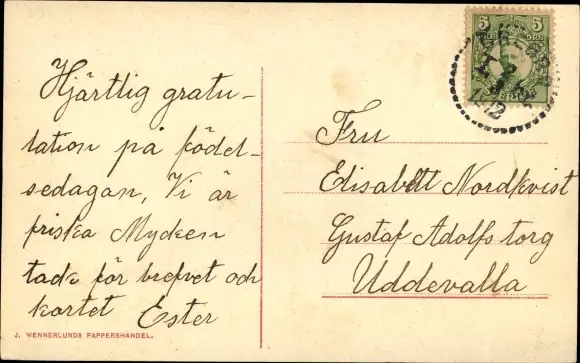 Hjärtlig gratu-
lation på födel-
sedagan, Vi är
friska Mycken
tack för brefvet och
kortet Ester
J. WENNERLUNDS PAPPERSHANDEL.
5 5
Fru
Elisabett Nordkvist
Gustaf Adolfs torg
Uddevalla